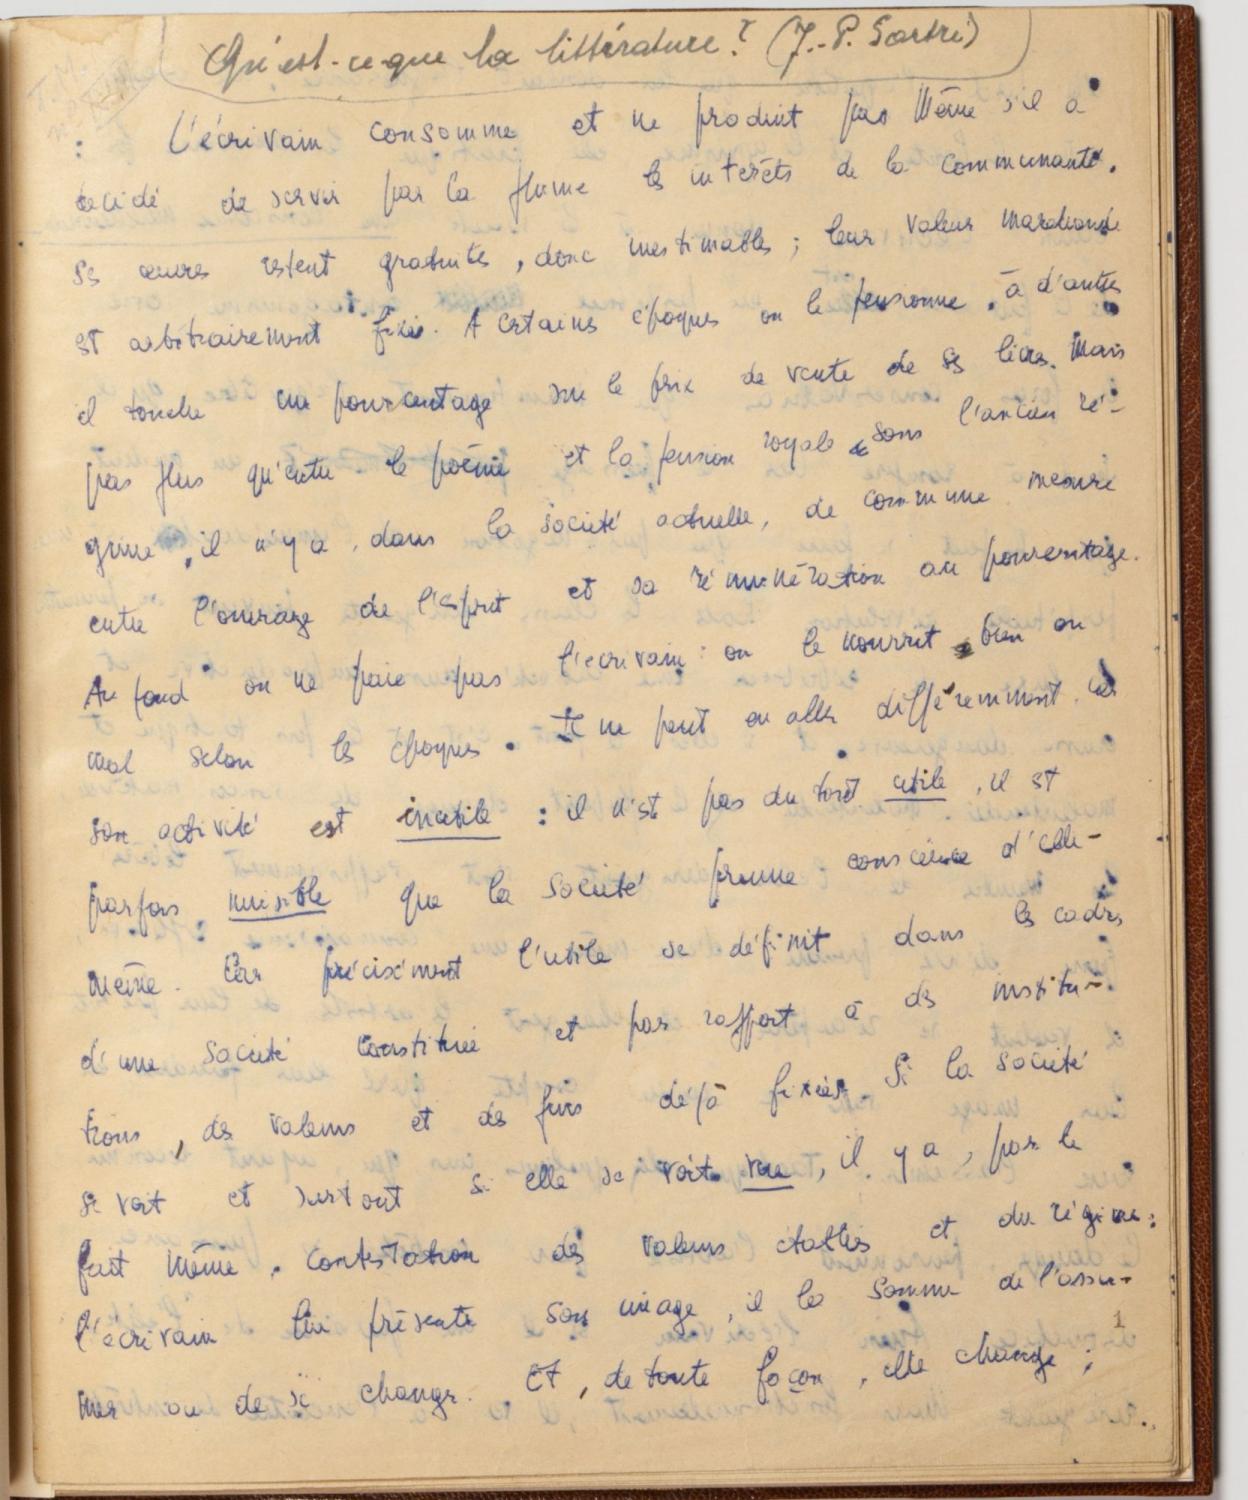 Qu'est-ce que la littérature? (J.-P. Sartre)
: L'écrivain consomme et ne produit pas même s'il a
décidé de servir par la plume les intérêts de la communauté.
Ses œuvres restent gratuites, donc inestimables ; leur valeur marchande
est arbitrairement fixée. A certaines époques on le pensionne, à d'autres
il touche un pourcentage sur le prix de vente de ses livres. Mais
pas plus qu'entre le poème et la pension royale sous l'ancien ré-
gime, il n'y a, dans la société actuelle, de commune mesure
entre l'ouvrage de l'esprit et sa rémunération au pourcentage.
Au fond on ne paie pas l'écrivain : on le nourrit bien ou
mal selon les époques. Il ne peut en aller différemment, car
son activité est inutile : il n'est pas du tout utile, il est
parfois nuisible que la société prenne conscience d'elle-
même. Car précisément l'utile se définit dans les cadres
d'une société constituée et par rapport à des institu-
tions, des valeurs et des fins déjà fixées. Si la société
se voit et surtout si elle se voit vue, il y a, par le
fait même, contestation des valeurs établies et du régime :
l'écrivain lui présente son image, il la somme de l'assu-
mer ou de se changer. Et, de toute façon, elle change ;
1